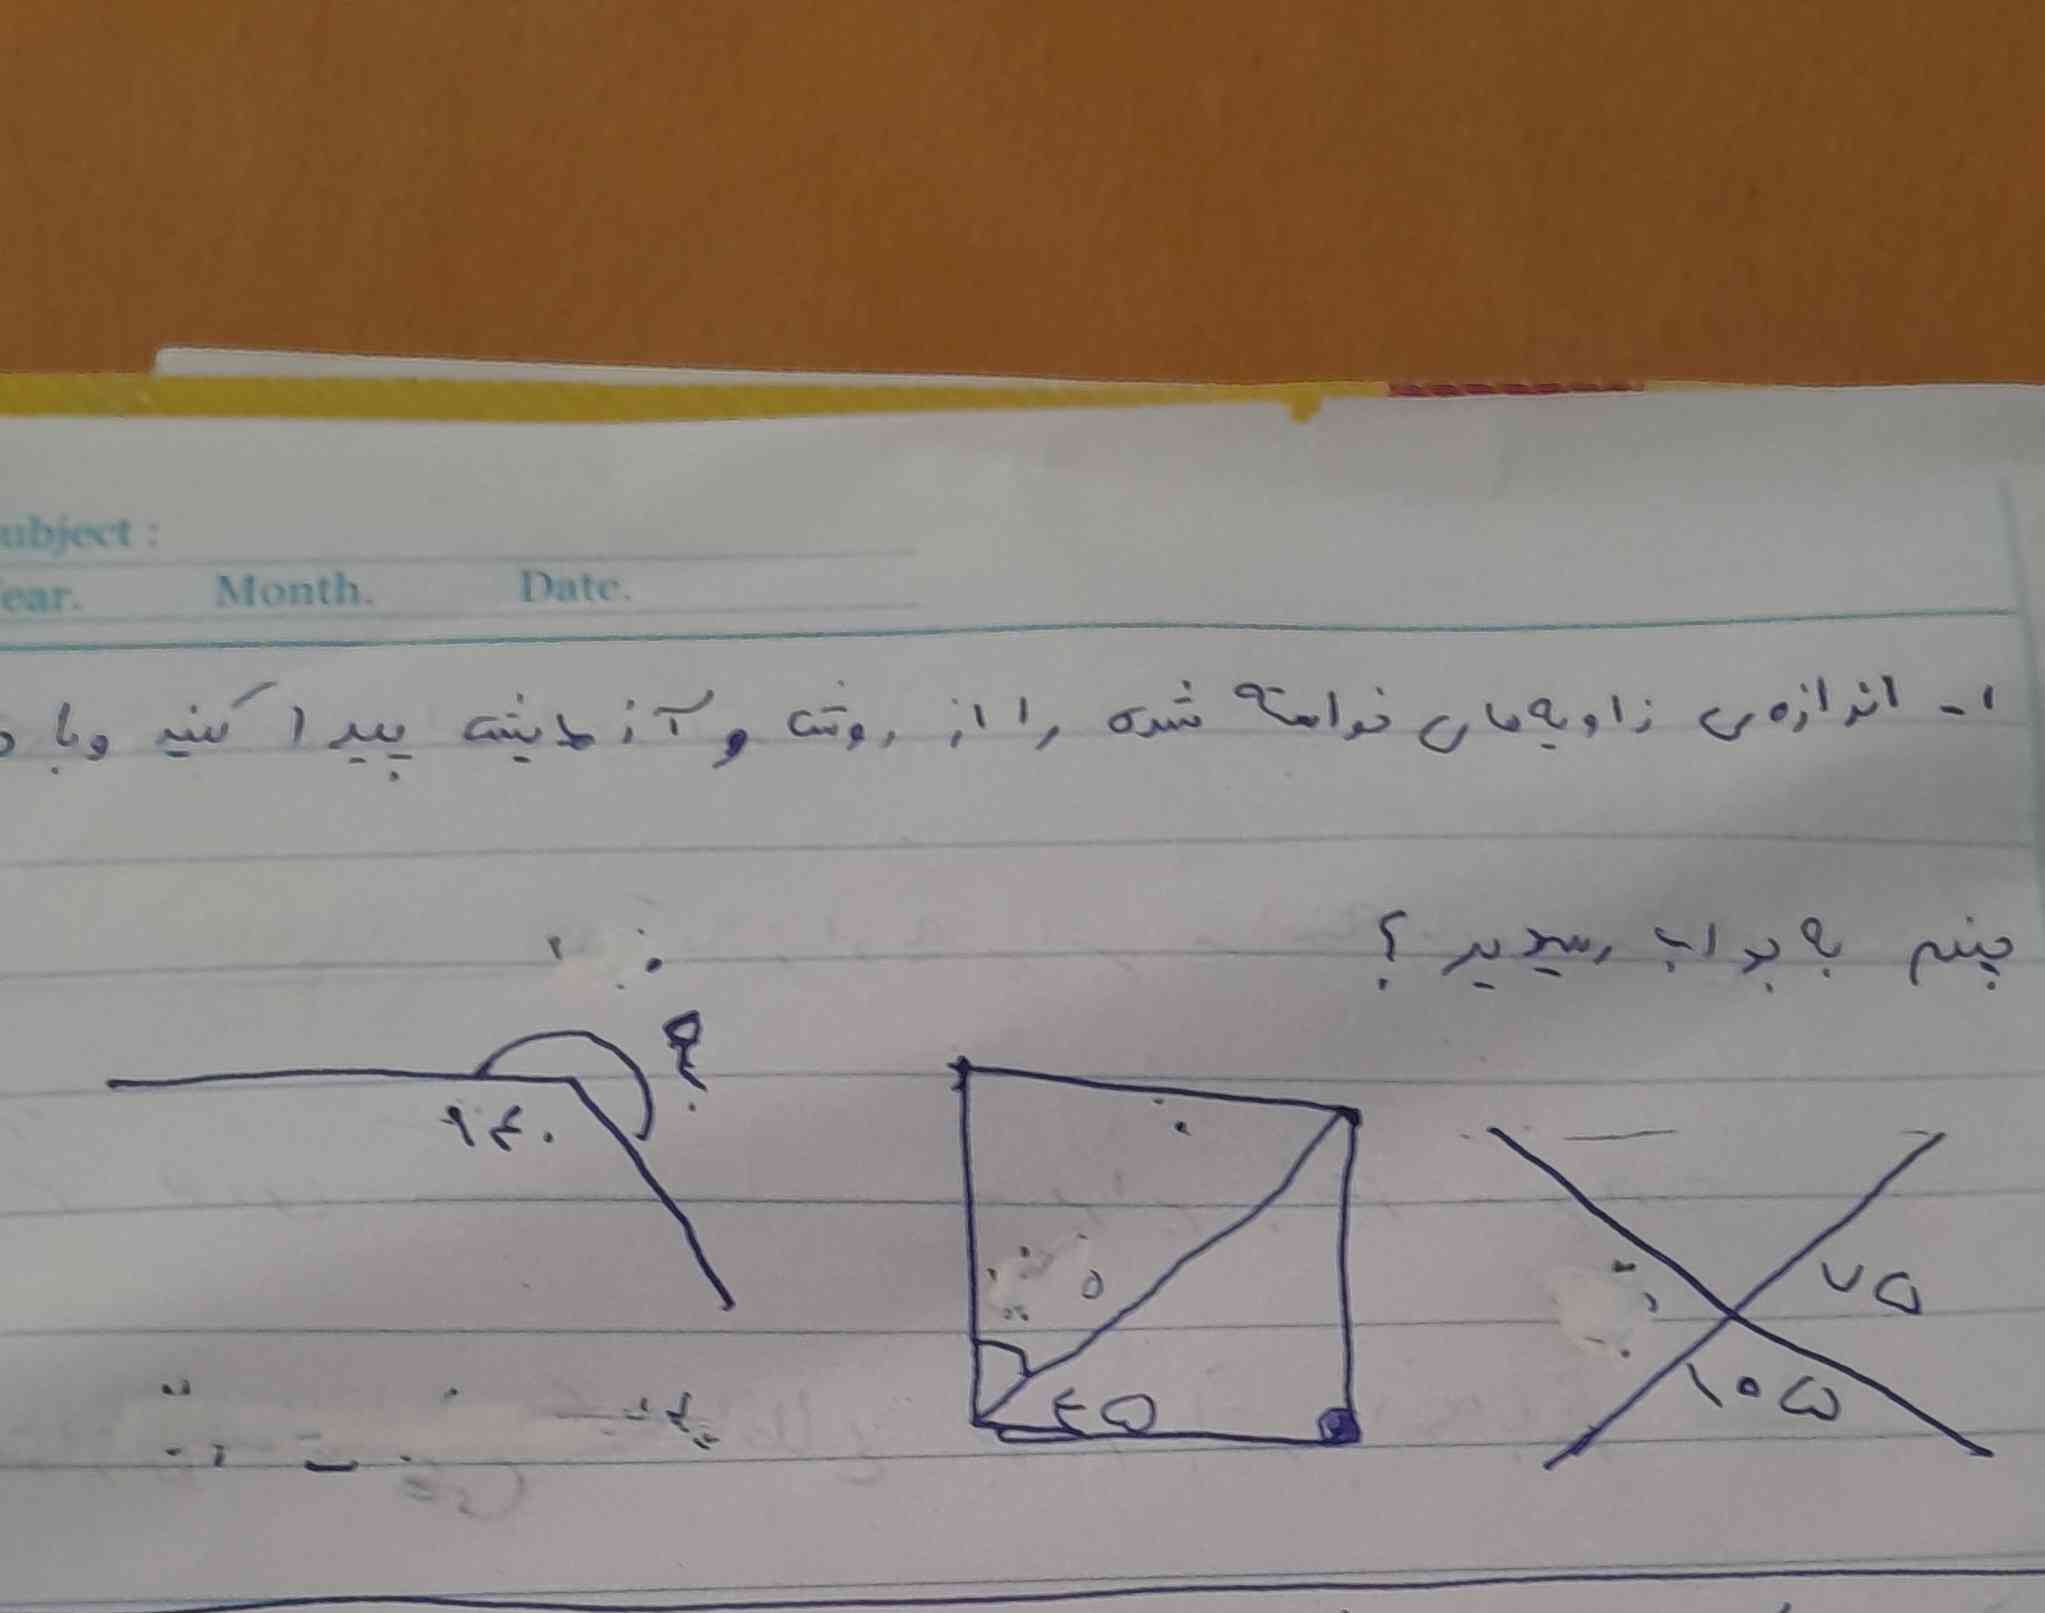 ubject :
ear. Month. Date.
۱- اندازه‌ی زاویه‌های خواسته شده را از روش و آزمایش پیدا کنید و با
چند به جواب رسیدید ؟
؟
۱۴۰
۷۵
۱۰۵
۴۵